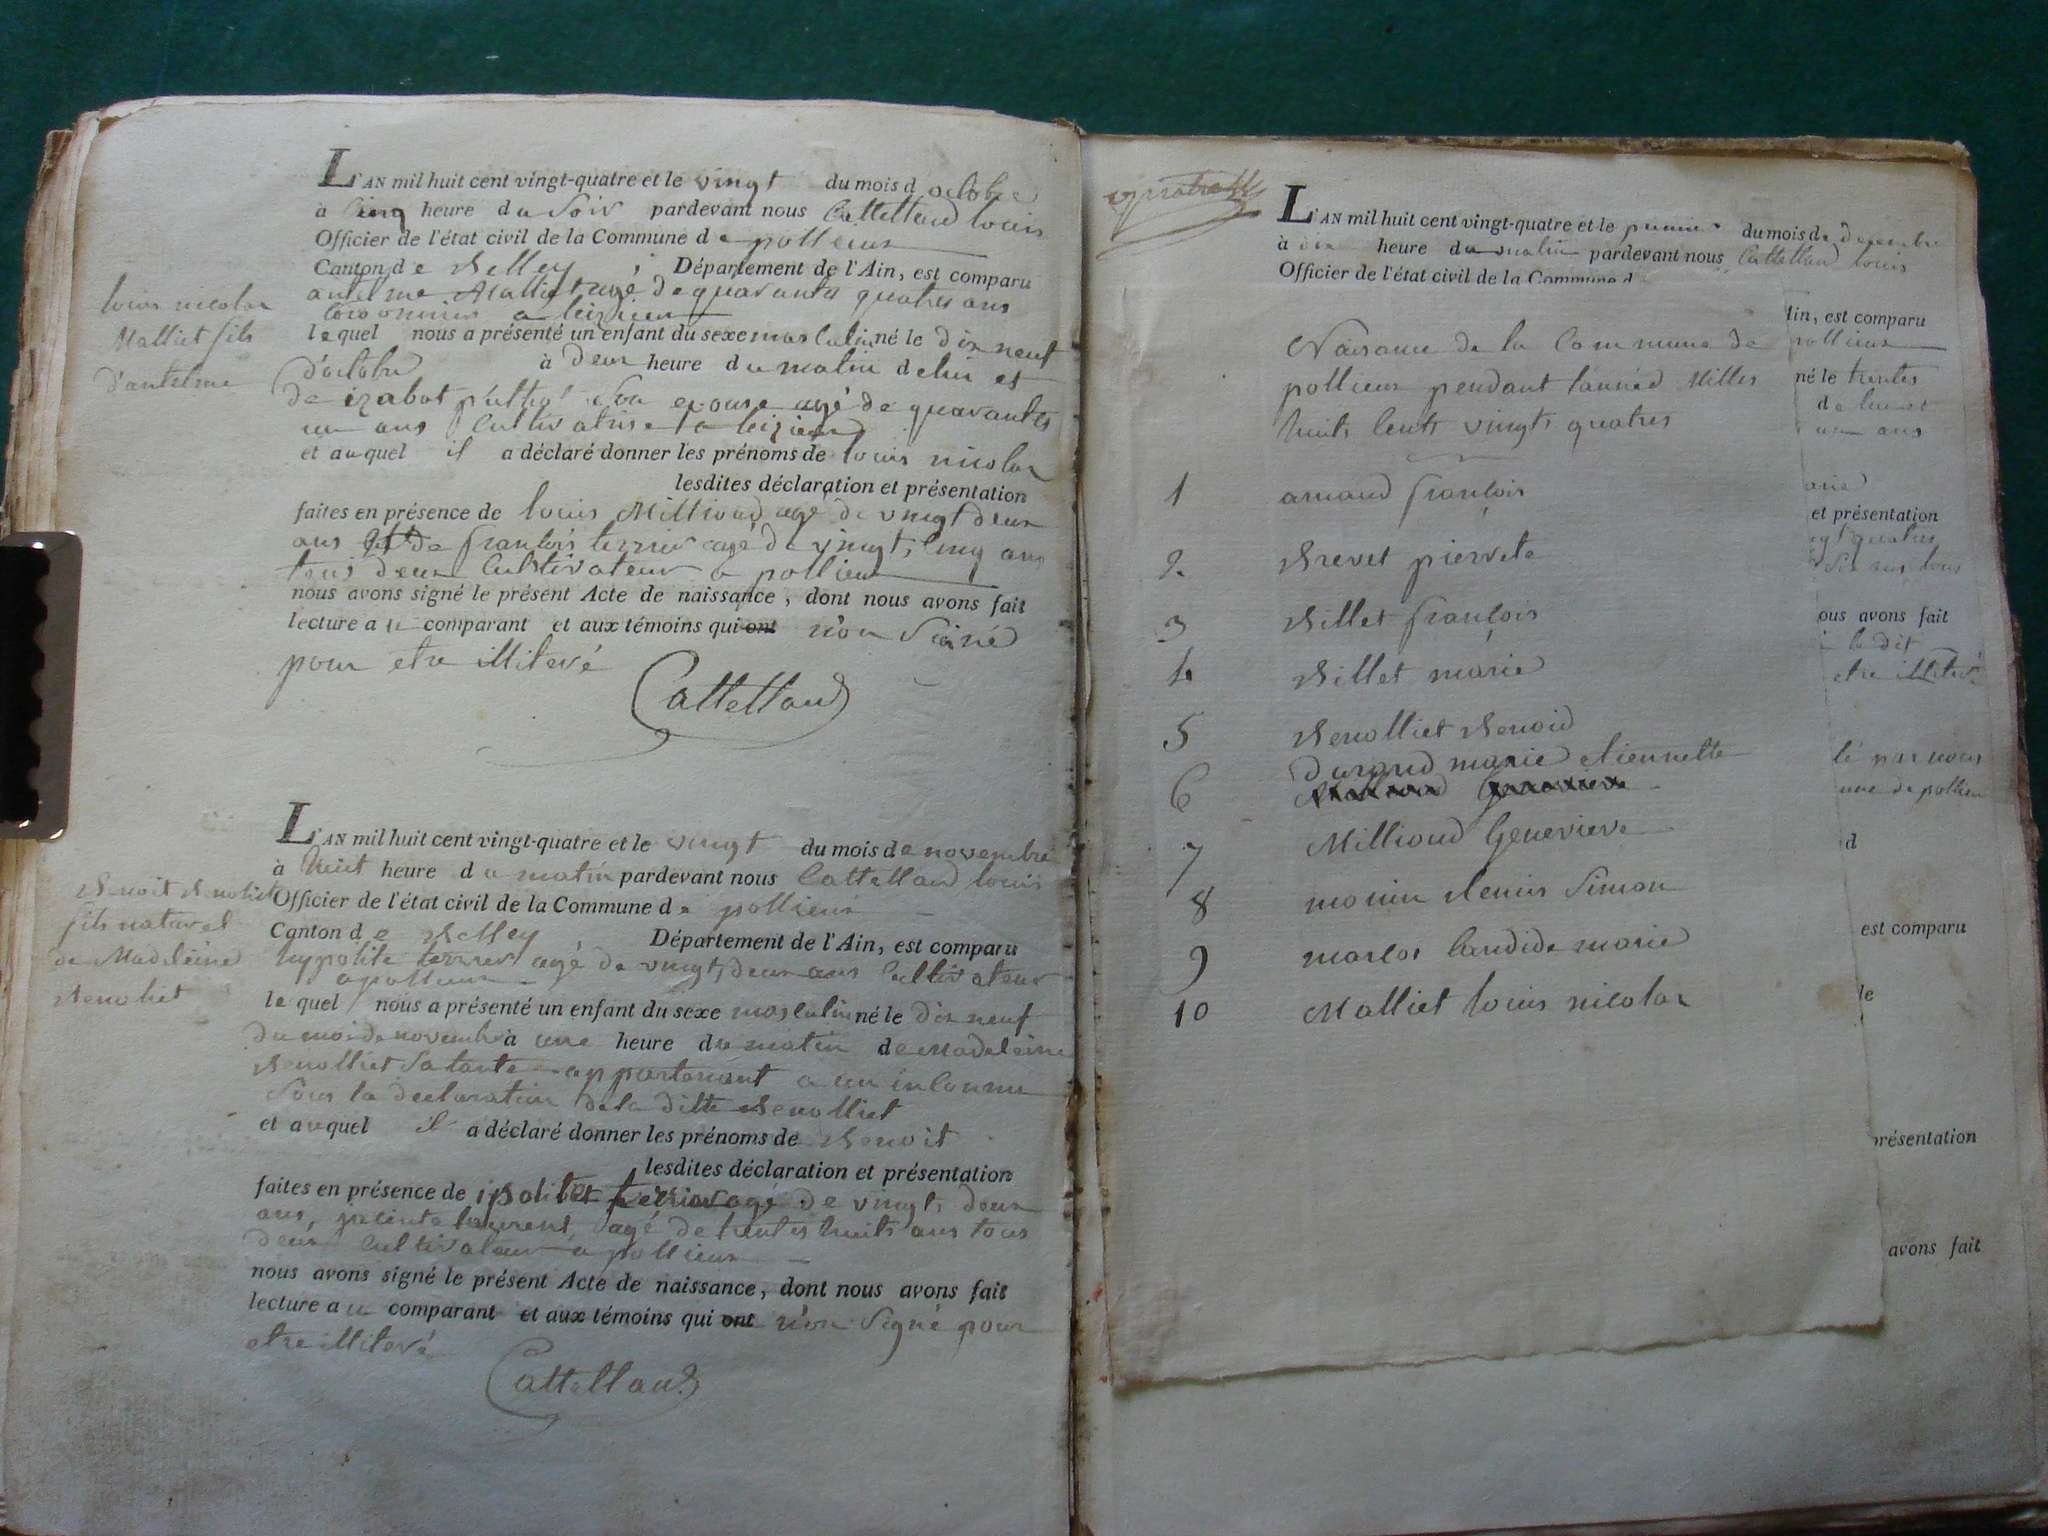 L'AN mil huit cent vingt-quatre et le vingt du mois d octobre
à cinq heure du soir pardevant nous Cattelland louis
Officier de l'état civil de la Commune de pollieux
Canton de Belley, Département de l'Ain, est comparu
antelme Malliet agé de quarantes quatres ans
a
lequel nous a présenté un enfant du sexe masculin né le dix neuf
d'octobre à deux heure du matin de lui et
de son epouse agé de quarantes
un ans Cultivatrise a
et auquel il a déclaré donner les prénoms de louis nicolas
lesdites déclaration et présentation
faites en présence de louis Millioud agé de vingt deux
ans et de françois terrier agé de vingt, cinq ans
tous deux Cultivateur a pollieux
nous avons signé le présent Acte de naissance, dont nous avons fait
lecture au comparant et aux témoins qui ont n'on Siné
pour etre illiteré
Cattelland
louis nicolas
Malliet fils
d'antelme
L'AN mil huit cent vingt-quatre et le vingt du mois de novembre
à huit heure du matin pardevant nous Cattelland louis
Officier de l'état civil de la Commune de pollieux
Canton de Belley Département de l'Ain, est comparu
hyppolite terrier agé de vingt, deux ans Cultivateur
a pollieux
lequel nous a présenté un enfant du sexe masculin né le dix neuf
du moi de novembre à une heure du matin de Madeleine
Benolliet Sa tante appartenant a un inconnu
Sous la declaration de la ditte Benolliet
et auquel il a déclaré donner les prénoms de Benoit
lesdites déclaration et présentation
faites en présence de ipolitet terrier agé de vingt, deux
ans, laurent, agé de trentes huits ans tous
deux Cultivateur a pollieux
nous avons signé le présent Acte de naissance, dont nous avons fait
lecture au comparant et aux témoins qui ont n'on Signé pour
etre illiteré
Cattelland
Benoit Benoliet
fils naturel
de Madeleine
Benoliet
L'AN mil huit cent vingt-quatre et le premier du mois de decembre
à dix heure du matin pardevant nous Cattelland louis
Officier de l'état civil de la Commune d
Naisance de la Commune de
pollieux pendant lannéé Milles
huits Cents vingts quatres
1 arnaud françois
2 Brevet pierrete
3 Billet françois
4 Billet marie
5 Benolliet Benoid
6 durand marie etiennette
7 Millioud Genevieve
8 monin denis Simon
9 Candide marie
10 Malliet louis nicolas
Ain, est comparu
pollieux
né le trentes
de lui et
un ans
et présentation
quatres
dix ans tous
ous avons fait
le dit
etre illiteré
lé par nous
une de pollieu
d
est comparu
le
présentation
avons fait